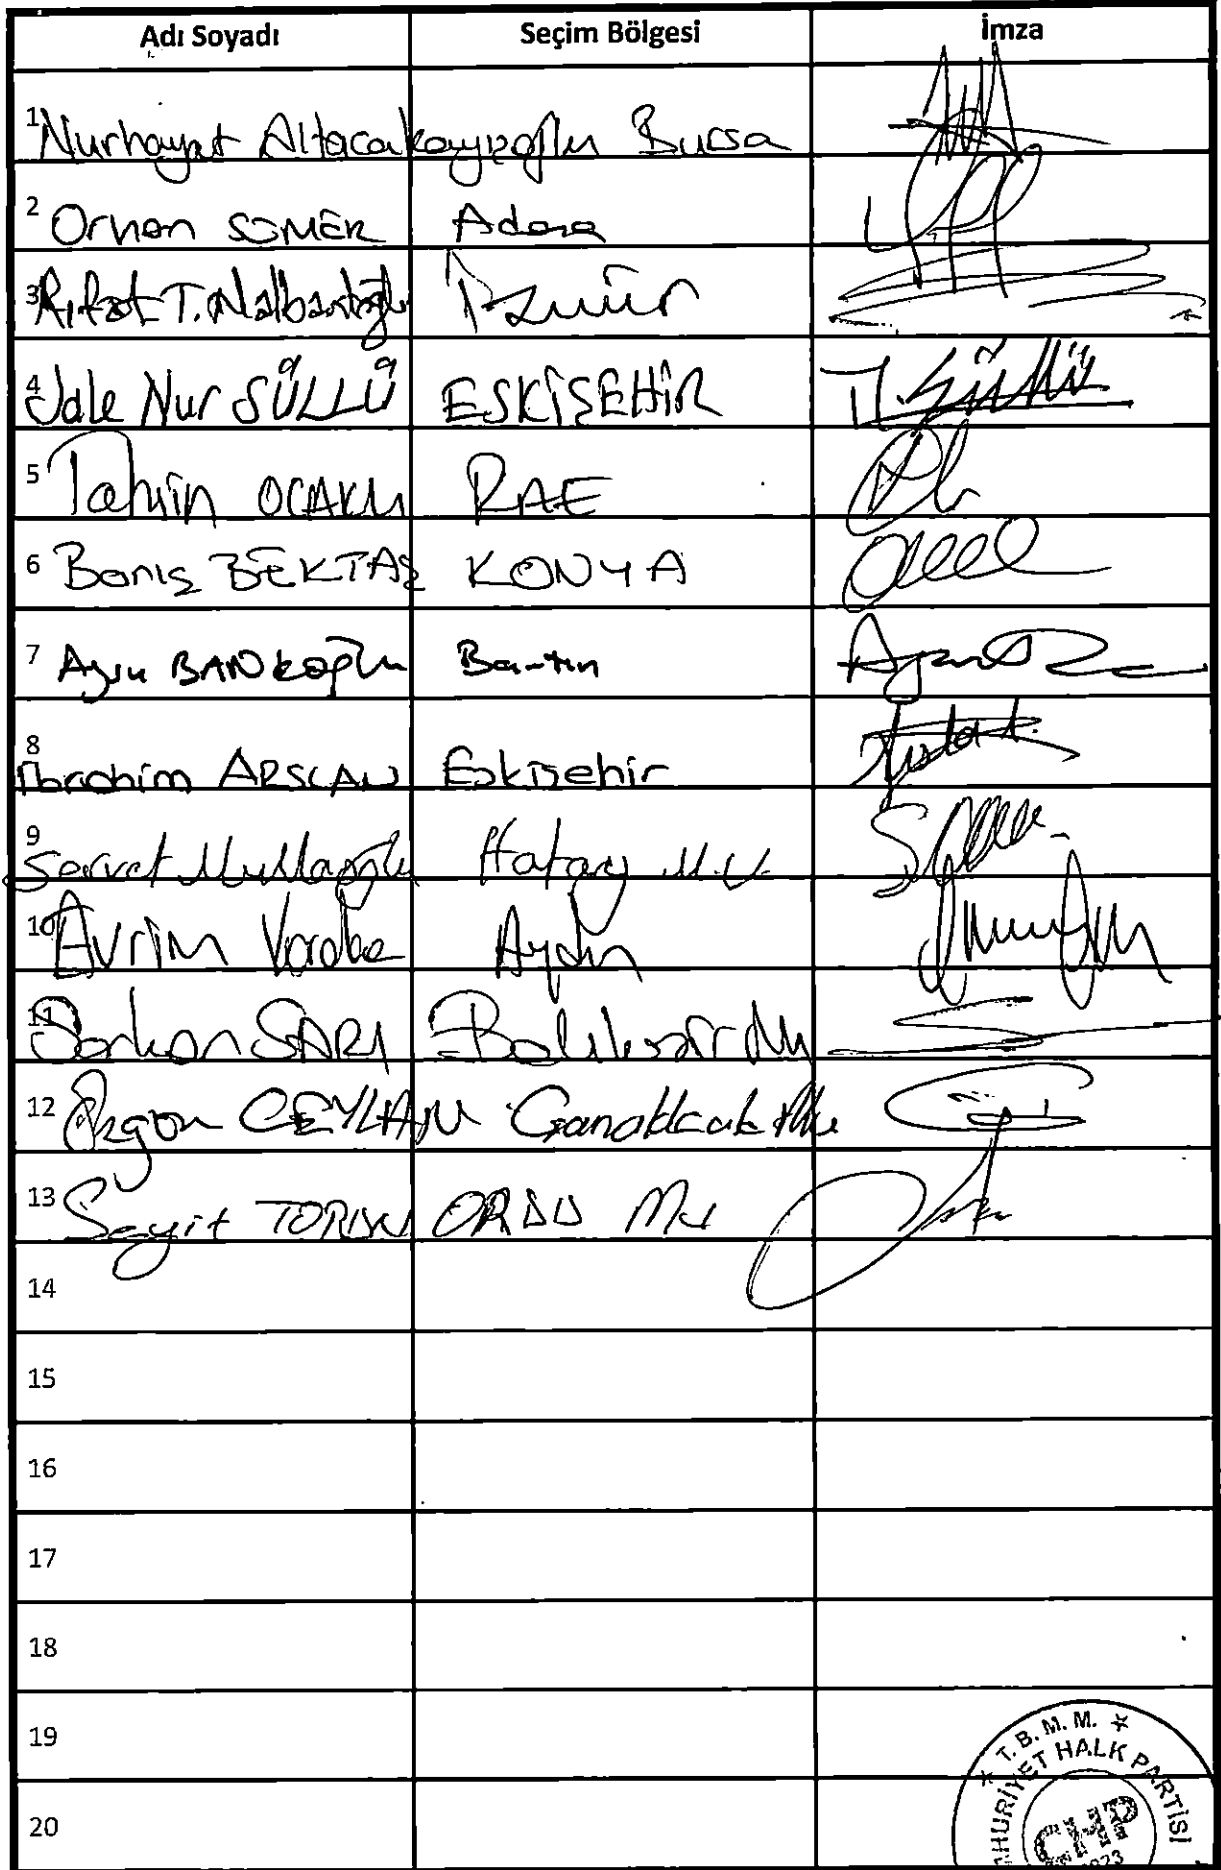 Adı Soyadı Seçim Bölgesi İmza
1 Nurhayat Altaca Kayışoğlu Bursa
2 Orhan SÜMER Adana
3 Rıfat T. Nalbantoğlu İzmir
4 Jale Nur SÜLLÜ ESKİŞEHİR
5 Tahsin OCAKLI RİZE
6 Barış BEKTAŞ KONYA
7 Aysu BANKOĞLU Bartın
8 İbrahim ARSLAN Eskişehir
9 Servet Mullaoğlu Hatay M.V.
10 Evrim Karakoz Aydın
11 Serkan SARI Balıkesir Mv
12 Özgür CEYLAN Çanakkale Mv
13 Seyit TORUN ORDU Mv
14
15
16
17
18
19
20
T.B.M.M.
HURİYET HALK PARTİSİ
CHP